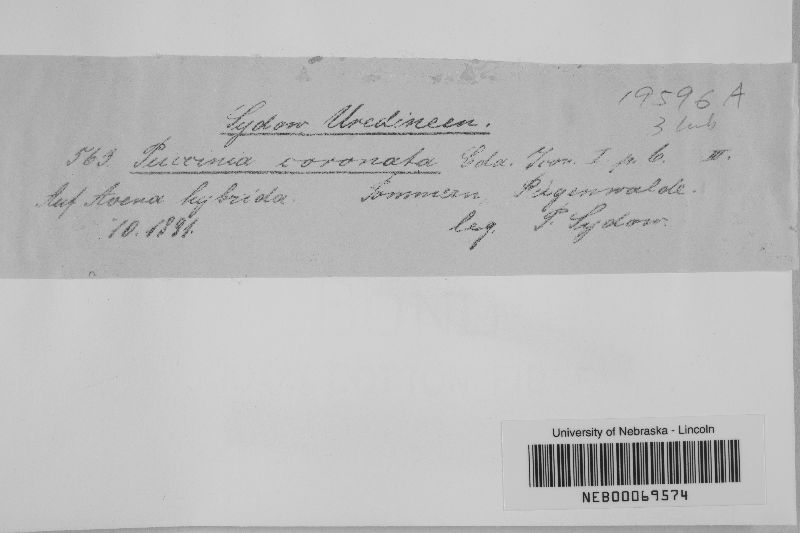 19596 A
Sydow Uredineen.
3 sub
563 Puccinia coronata Cda. Icon. I p. 6. III.
Auf Avena hybrida. Pommern, Rügenwalde.
10. 1891. leg. P. Sydow.
University of Nebraska - Lincoln
NEB00069574